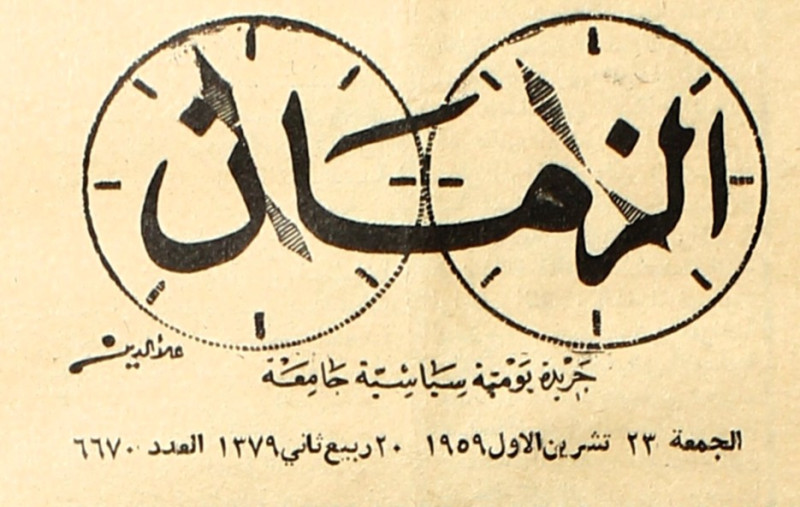 الزمان
علاء الدين
جَرِيْدَة يَوْمِيَّة سِيَاسِيَّة جَامِعَة
الجمعة ٢٣ تشرين الاول ١٩٥٩ ٢٠ ربيع ثاني ١٣٧٩ العدد ٦٦٧٠